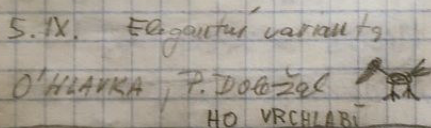 5. IX. Elegantní varianta
O'HLAVKA, P. Doležal
HO VRCHLABÍ